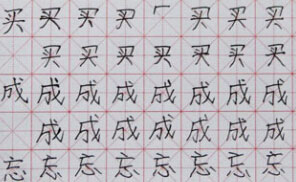 买 买 买 买 买 买
买 买 买 买 买 买 买
成 成 成 成 成 成 成 成
成 成 成 成 成 成 成
忘 忘 忘 忘 忘 忘 忘 忘